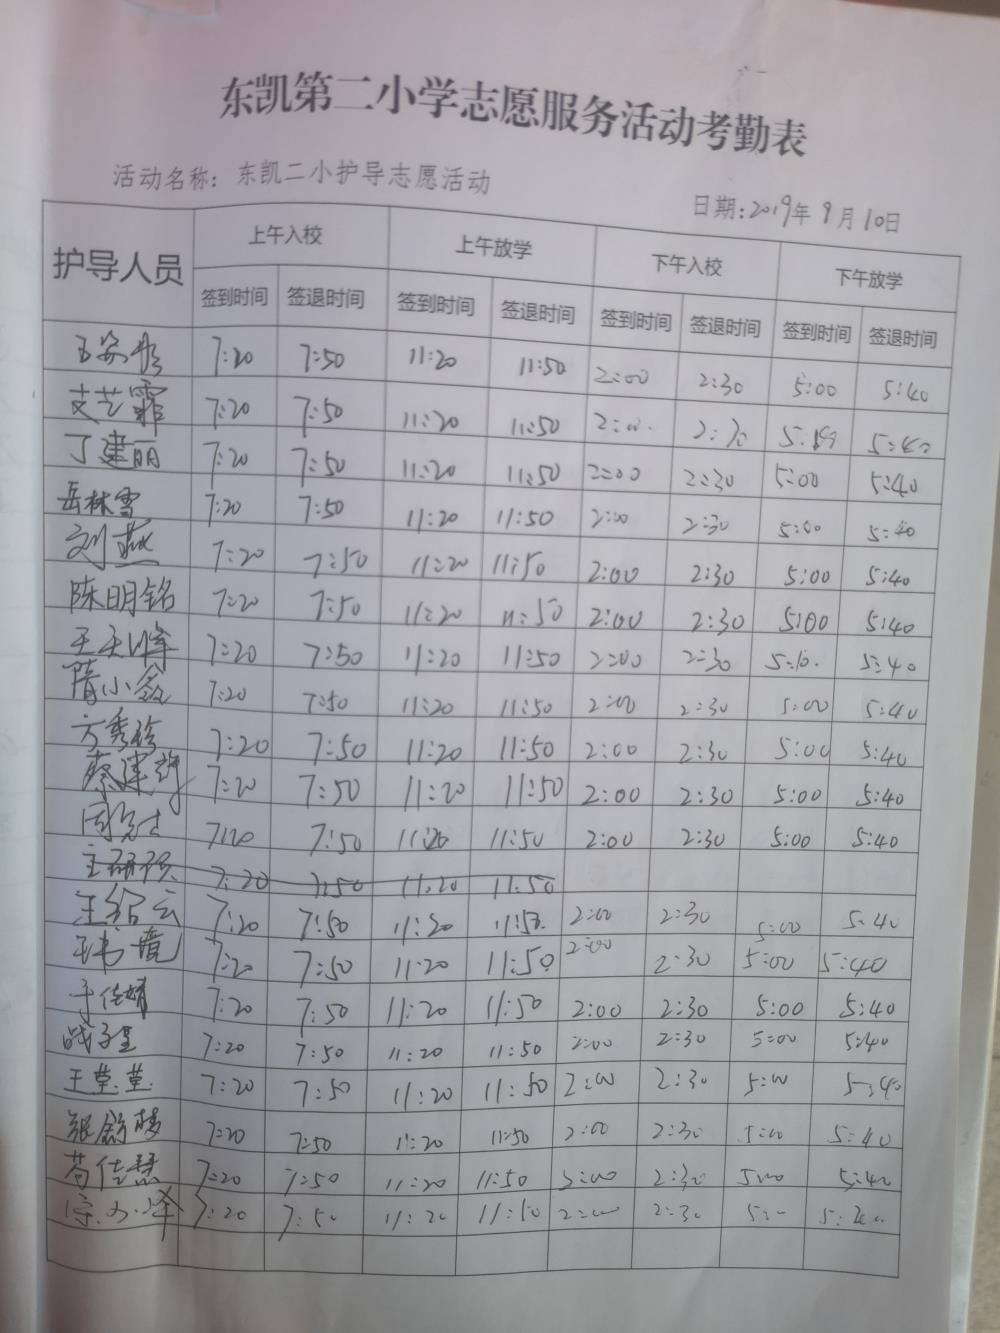 东凯第二小学志愿服务活动考勤表
活动名称：东凯二小护导志愿活动
日期：2019年9月10日
护导人员 上午入校 上午放学 下午入校 下午放学
签到时间 签退时间 签到时间 签退时间 签到时间 签退时间 签到时间 签退时间
王安彤 7:20 7:50 11:20 11:50 2:00 2:30 5:00 5:40
艾芝霏 7:20 7:50 11:20 11:50 2:00 2:30 5:40
丁建丽 7:20 7:50 11:20 11:50 2:00 2:30 5:00 5:40
岳林雪 7:20 7:50 11:20 11:50 2:00 2:30 5:00 5:40
刘燕 7:20 7:50 11:20 11:50 2:00 2:30 5:00 5:40
陈明铭 7:20 7:50 11:20 11:50 2:00 2:30 5:00 5:40
王天峰 7:20 7:50 11:20 11:50 2:00 2:30 5:10. 5:40
隋小 7:20 7:50 11:20 11:50 2:00 2:30 5:00 5:40
方秀 7:20 7:50 11:20 11:50 2:00 2:30 5:00 5:40
蔡建 7:20 7:50 11:20 11:50 2:00 2:30 5:00 5:40
7:20 7:50 11:20 11:50 2:00 2:30 5:00 5:40
王 7:20 7:50 11:20 11:50
王绍云 7:20 7:50 11:20 11:50. 2:00 2:30 5:00 5:40
7:20 7:50 11:20 11:50 2:00 2:30 5:00 5:40
于佳婧 7:20 7:50 11:20 11:50 2:00 2:30 5:00 5:40
战子呈 7:20 7:50 11:20 11:50 2:00 2:30 5:00 5:40
王莹莹 7:20 7:50 11:20 11:50 2:00 2:30 5:00 5:40
张舒 7:20 7:50 11:20 11:50 2:00 2:30 5:00 5:40
苟佳慧 7:20 7:50 11:20 11:50 2:00 2:30 5:00 5:40
7:20 7:50 11:20 11:50 2:00 2:30 5:00